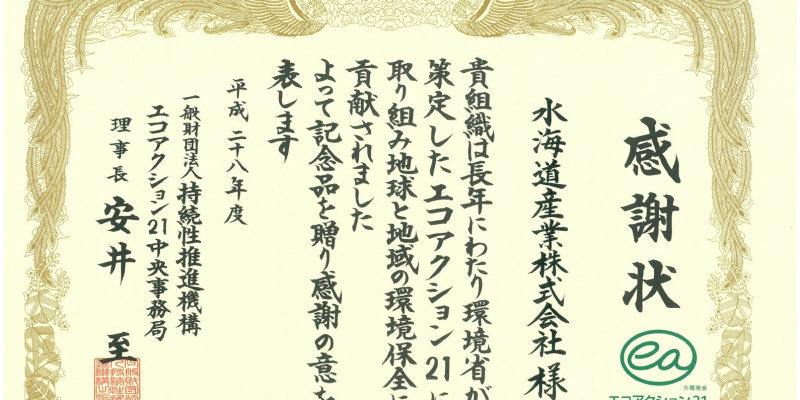 感謝状
水海道産業株式会社様
貴組織は長年にわたり環境省が
策定したエコアクション21に
取り組み地球と地域の環境保全に
貢献されました
よって記念品を贈り感謝の意を
表します
平成二十八年度
一般財団法人持続性推進機構
エコアクション21中央事務局
理事長 安井 至
ea
環境省
エコアクション21